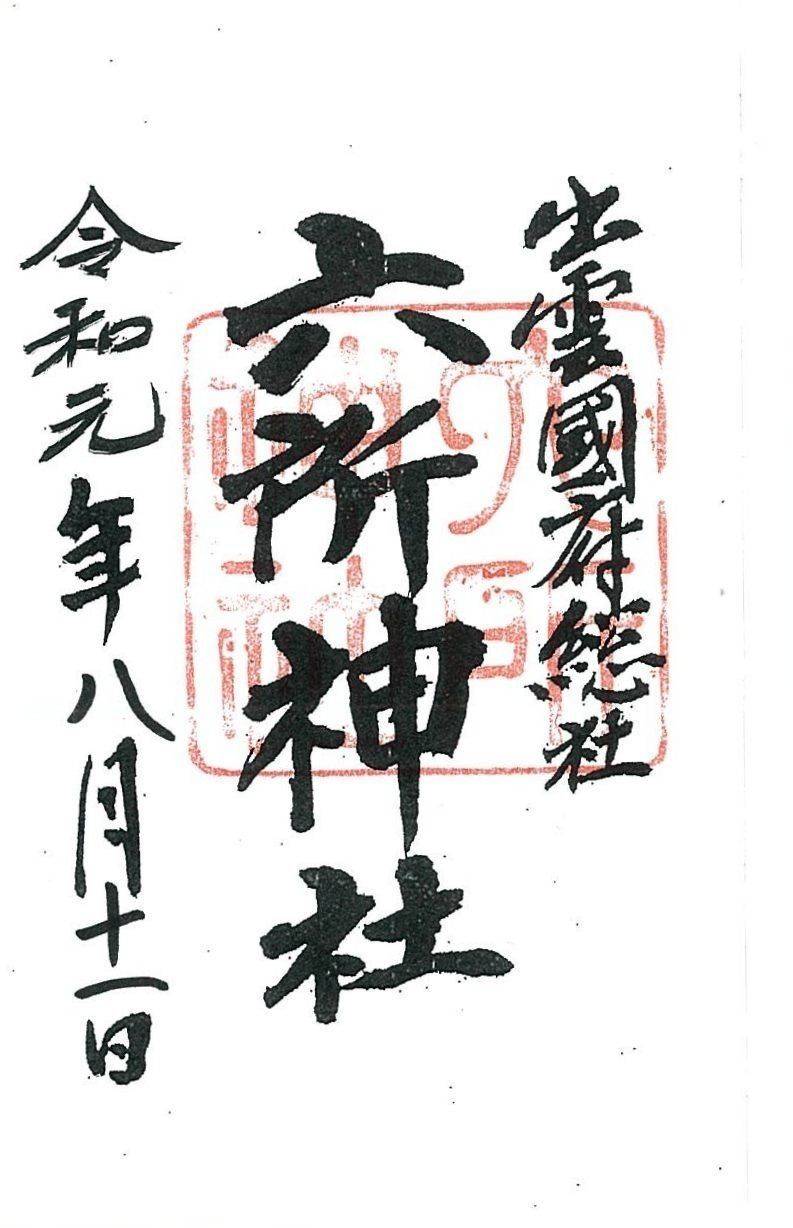 出雲國府総社
六所神社
令和元年八月十一日